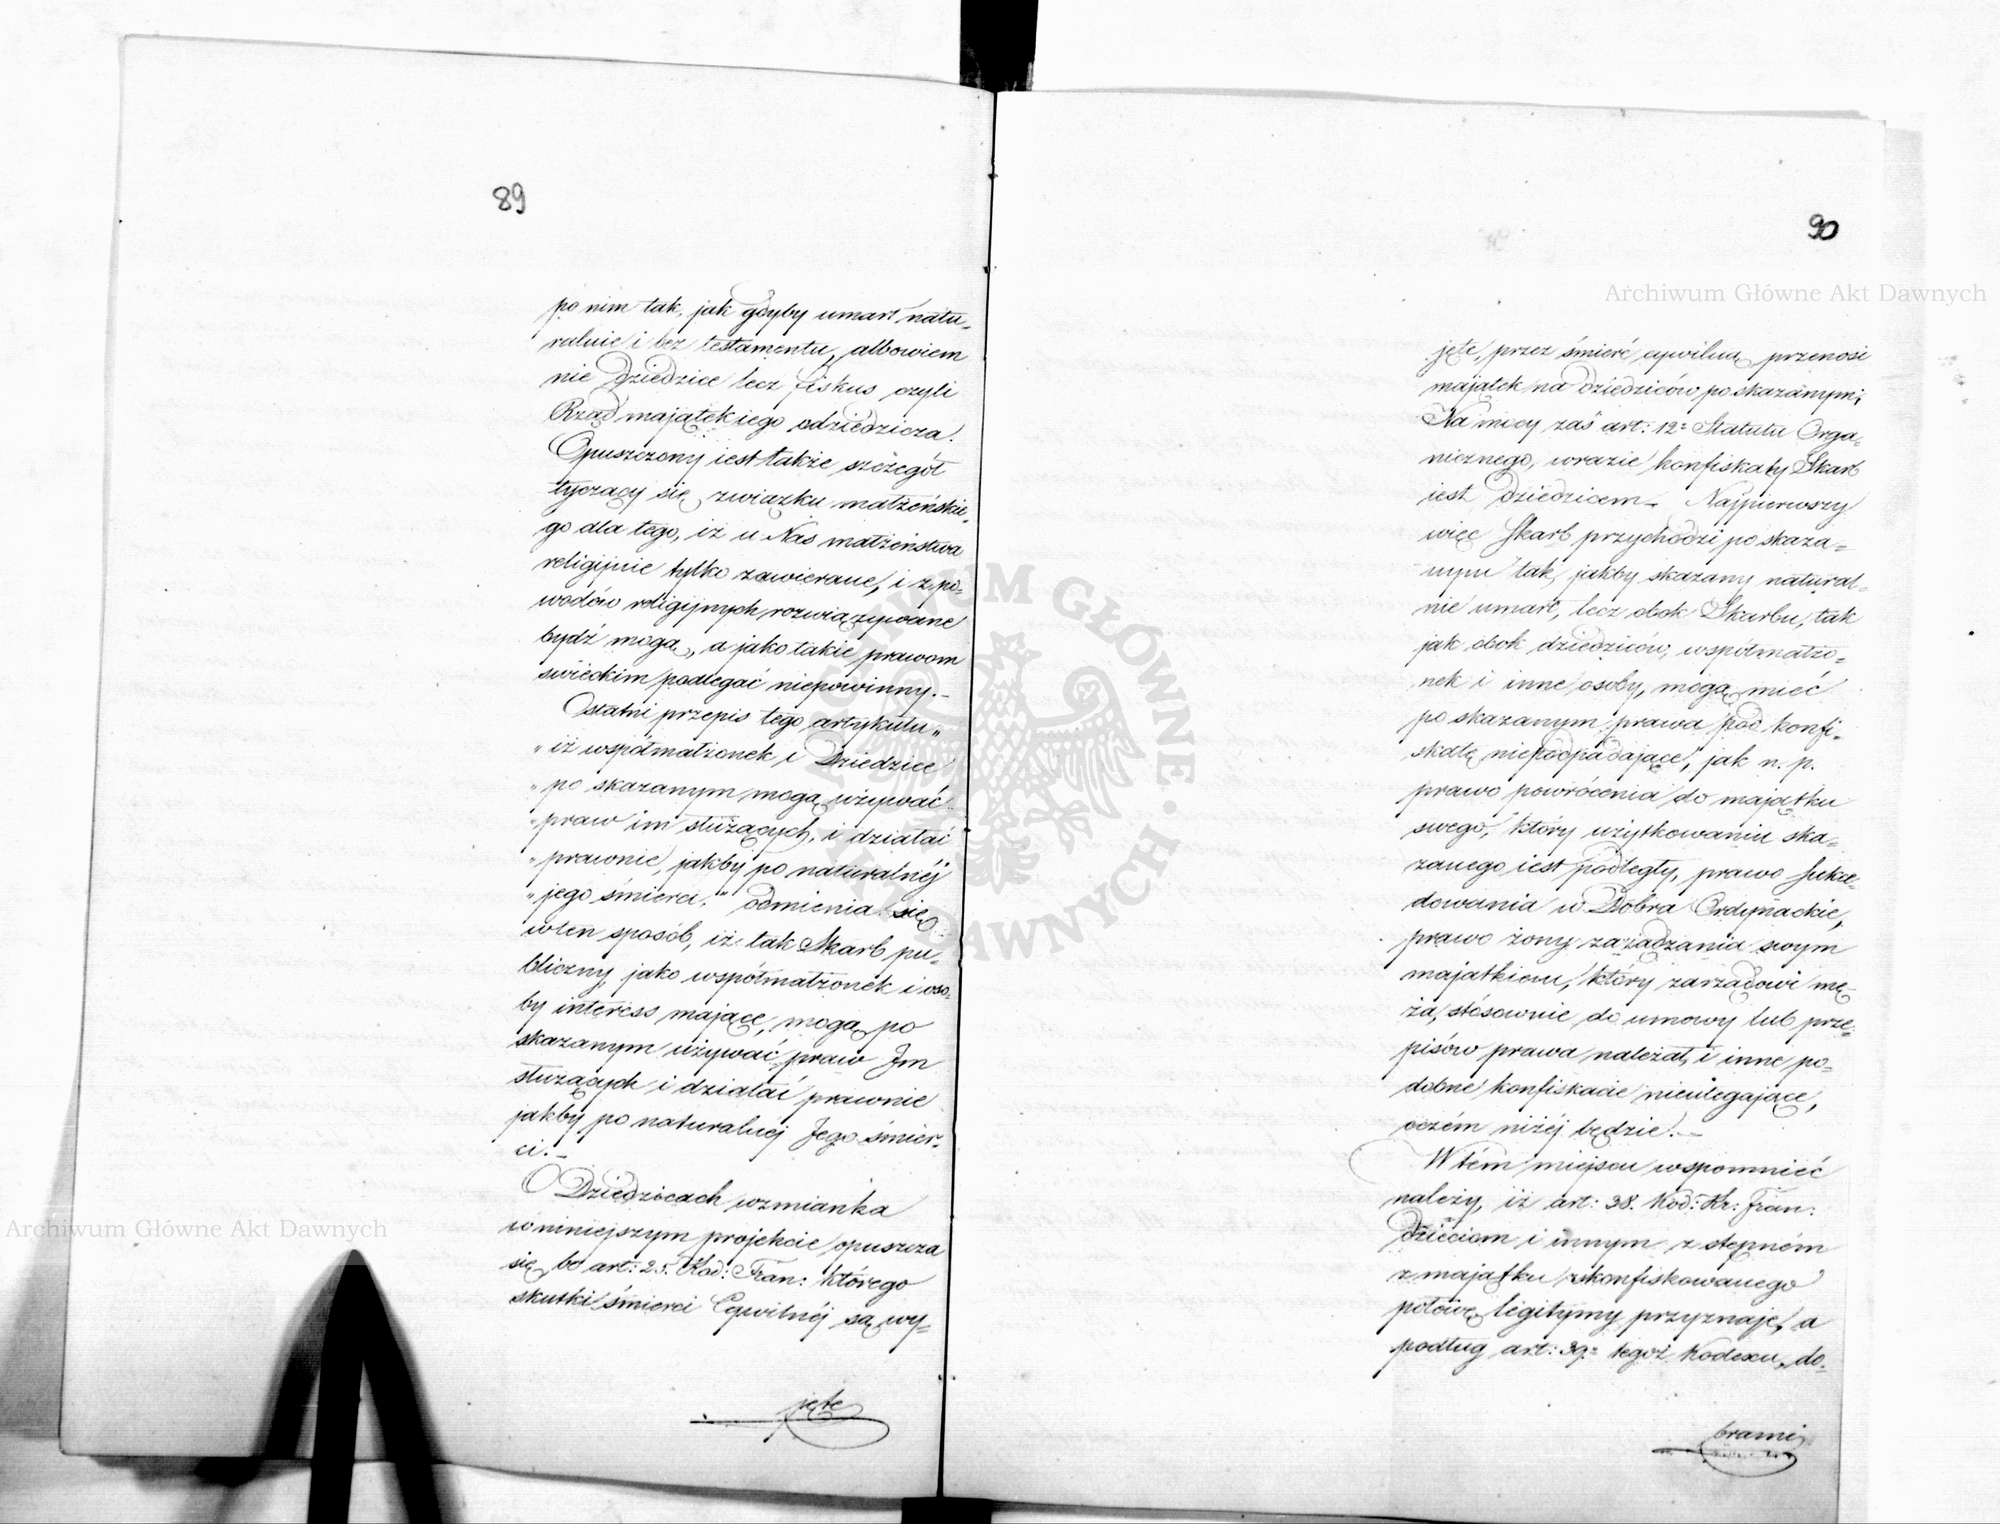 89
po nim tak, jak gdyby umarł natu-
ralnie i bez testamentu, albowiem
nie dziedzice lecz fiskus czyli
Rząd majątek iego odziedzicza.
Opuszczony iest także szczegół
tyczący się związku małżeńskie-
go dla tego, iż u Nas małżeństwa
religijnie tylko zawierane, i z po-
wodów religijnych rozwiązywane
bydź mogą, a jako takie prawom
świeckim podlegać niepowinny.-
Ostatni przepis tego artykułu"
"iż współmałżonek i Dziedzice
"po skazanym mogą używać
"praw im służących, i działać
"prawnie, jakby po naturalnéj
"jego śmierci." odmienia się
wten sposób, iż tak Skarb pu-
bliczny, jako współmałżonek i oso-
by interess mające, mogą po
skazanym używać praw Jm
służących i działać prawnie
jakby po naturalnéj Jego śmier-
ci.-
O Dziedzicach wzmianka
w niniejszym projekcie opuszcza
się, bo art: 25. Kod: Fran: którego
skutki śmierci Cywilnéj są wy-
jęte
90
jęte, przez śmierć cywilną przenosi
majątek na dziedziców po skazanym;
Na mocy zaś art: 12= Statutu Orga-
nicznego, wrazie konfiskaty Skarb
iest dziedzicem- Najpierwszy
więc Skarb przychodzi po skaza-
nym tak, jakby skazany natural-
nie umarł, lecz obok Skarbu, tak
jak obok dziedziców, współmałżo-
nek i inne osoby, mogą mieć
po skazanym prawa pod konfi-
skatę niepodpadające, jak n. p.
prawo powrócenia do majątku
swego, który użytkowaniu ska-
zanego iest podległy, prawo sukce-
dowania w Dobra Ordynackie,
prawo żony zarządzania swym
majątkiem, który zarządowi mę-
ża, stósownie do umowy lub prze-
pisów prawa należał, i inne po-
dobne konfiskacie nieulegające,
oczém niżéj będzie.-
W tém miejscu wspomnieć
należy, iż art: 38. Kod: Kr: Fran:
dzieciom i innym z stępném
z majątku zkonfiskowanego
połowę legitymy przyznaje, a
podług art: 39= tegoż Kodexu, do-
brami
Archiwum Główne Akt Dawnych
Archiwum Główne Akt Dawnych
ARCHIWUM GŁÓWNE AKT DAWNYCH